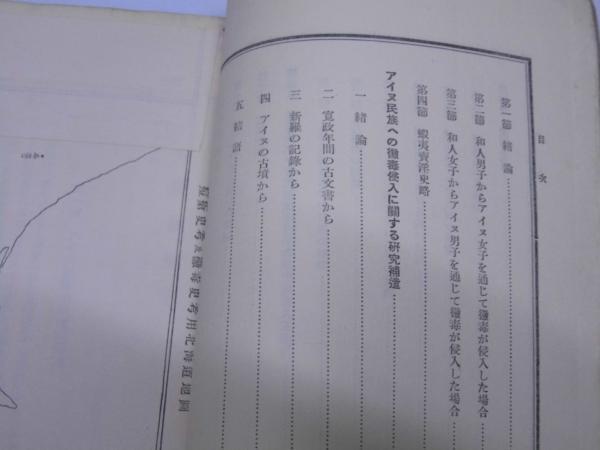 目次
第一節 緒論
第二節 和人男子からアイヌ女子を通じて黴毒が侵入した場合
第三節 和人女子からアイヌ男子を通じて黴毒が侵入した場合
第四節 蝦夷賣淫史略
アイヌ民族への黴毒侵入に關する研究補遺
一 緒論
二 寛政年間の古文書から
三 新羅の記錄から
四 アイヌの古墳から
五 結語
痘瘡史考及黴毒史考用北海道地圖